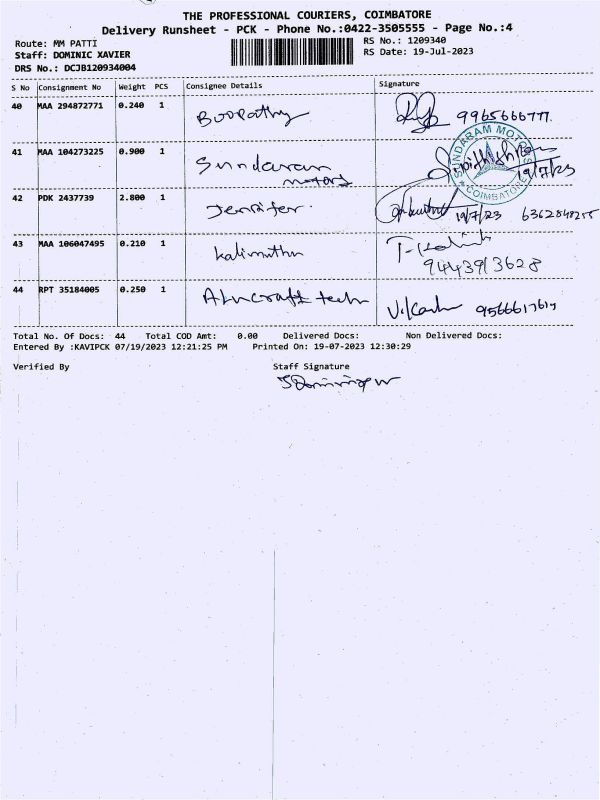 THE PROFESSIONAL COURIERS, COIMBATORE
Delivery Runsheet - PCK - Phone No.:0422-3505555 - Page No.:4
Route: MM PATTI
RS No.: 1209340
Staff: DOMINIC XAVIER
RS Date: 19-Jul-2023
DRS No.: DCJB120934004
S No Consignment No Weight PCS Consignee Details Signature
40 MAA 294872771 0.240 1 Boopathy 9965666777.
41 MAA 104273225 0.900 1 Sundaram motors 19/7/23
SUNDARAM MOTORS
COIMBATORE
42 PDK 2437739 2.800 1 Jennifer. 19/7/23 6362848255
43 MAA 106047495 0.210 1 Kalimuthu
9443913628
44 RPT 35184005 0.250 1 tech
Total No. Of Docs: 44 Total COD Amt: 0.00 Delivered Docs: Non Delivered Docs:
Entered By :KAVIPCK 07/19/2023 12:21:25 PM Printed On: 19-07-2023 12:30:29
Verified By Staff Signature